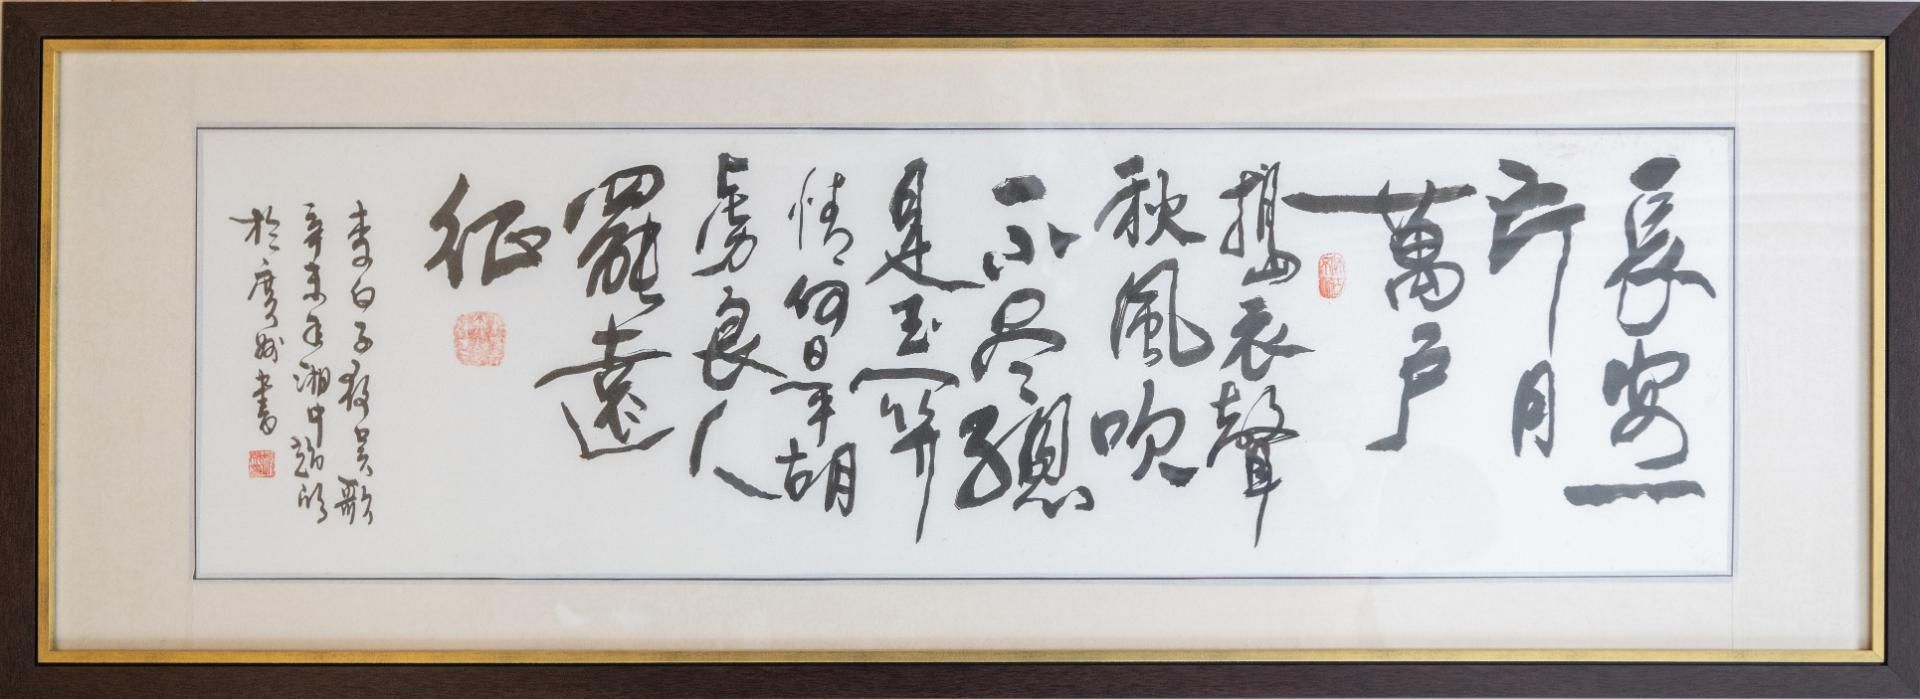 長安一
片月
萬戶
搗衣聲
秋風吹
不尽總
是玉關
情何日平胡
虜良人
罷遠
征
李白子夜吳歌
辛未年湘中
於廣州書